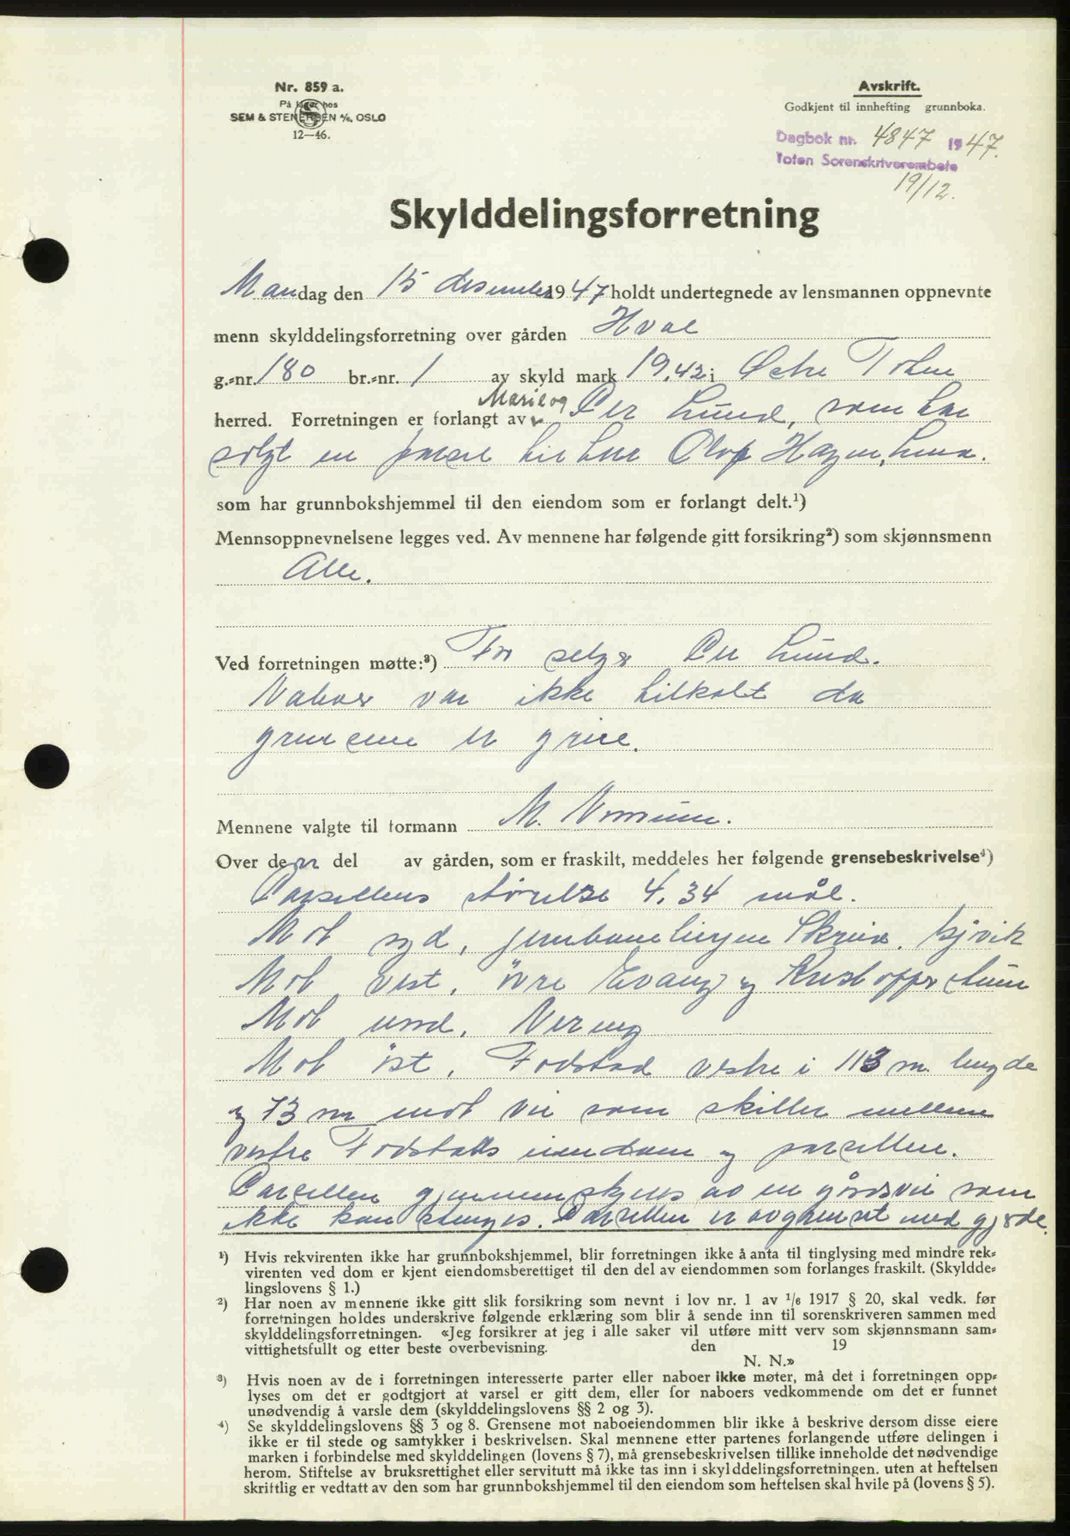 Nr. 859 a.
På lager hos
SEM & STENERSEN A/S, OSLO
12—46.
Avskrift.
Godkjent til innhefting grunnboka.
Dagbok nr. 4847 1947.
Toten Sorenskriverembete
19/12.
Skylddelingsforretning
Mandag den 15 desember 1947 holdt undertegnede av lensmannen oppnevnte
menn skylddelingsforretning over gården Hval
g.=nr. 180 br.=nr. 1 av skyld mark 19,42 i Østre Toten
Marie og
herred. Forretningen er forlangt av Per Lund, som har
solgt en parsel til herr Olof Hagen, Lena.
som har grunnbokshjemmel til den eiendom som er forlangt delt.¹)
Mennsoppnevnelsene legges ved. Av mennene har følgende gitt forsikring²) som skjønnsmenn
Alle.
Ved forretningen møtte:³) For selger Per Lund.
Naboer var ikke tilkalt da
grensene er greie.
Mennene valgte til formann M.
Over den del av gården, som er fraskilt, meddeles her følgende grensebeskrivelse⁴)
Parsellens størrelse 4,34 mål.
Mot syd, jernbanelinjen Skreia. Gjøvik
Mot vest, övre Evang og Kristoffer
Mot nord, Nering
Mot öst, Fodstad vestre i 113 m lengde
og 73 m mot vei som skiller mellem
vestre Fodstads eiendom og parsellen.
Parsellen gjennemskjæres av en gårdsvei som
ikke kan stenges. Parsellen er avgrenset med gjerde.
¹) Hvis rekvirenten ikke har grunnbokshjemmel, blir forretningen ikke å anta til tinglysing med mindre rek=
virenten ved dom er kjent eiendomsberettiget til den del av eiendommen som forlanges fraskilt. (Skyldde=
lingslovens § 1.)
²) Har noen av mennene ikke gitt slik forsikring som nevnt i lov nr. 1 av 1/6 1917 § 20, skal vedk. før
forretningen holdes underskrive følgende erklæring som blir å sende inn til sorenskriveren sammen med
skylddelingsforretningen. «Jeg forsikrer at jeg i alle saker vil utføre mitt verv som skjønnsmann sam=
vittighetsfullt og etter beste overbevisning. den 19
N. N.»
³) Hvis noen av de i forretningen interesserte parter eller naboer ikke møter, må det i forretningen opp=
lyses om det er godtgjort at varsel er gitt dem, eller for naboers vedkommende om det er funnet
unødvendig å varsle dem (skylddelingslovens §§ 2 og 3).
⁴) Se skylddelingslovens §§ 3 og 8. Grensene mot naboeiendommen blir ikke å beskrive dersom disse eiere
ikke er til stede og samtykker i beskrivelsen. Skal mennene etter partenes forlangende utføre delingen i
marken i forbindelse med skylddelingen (lovens § 7), må grensebeskrivelsen tillike inneholde det nødvendige
herom. Stiftelse av bruksrettighet eller servitutt må ikke tas inn i skylddelingsforretningen. uten at heftelsen
skriftlig er vedtatt av den som har grunnbokshjemmel til den eiendom som heftelsen skal hvile på (lovens § 5).